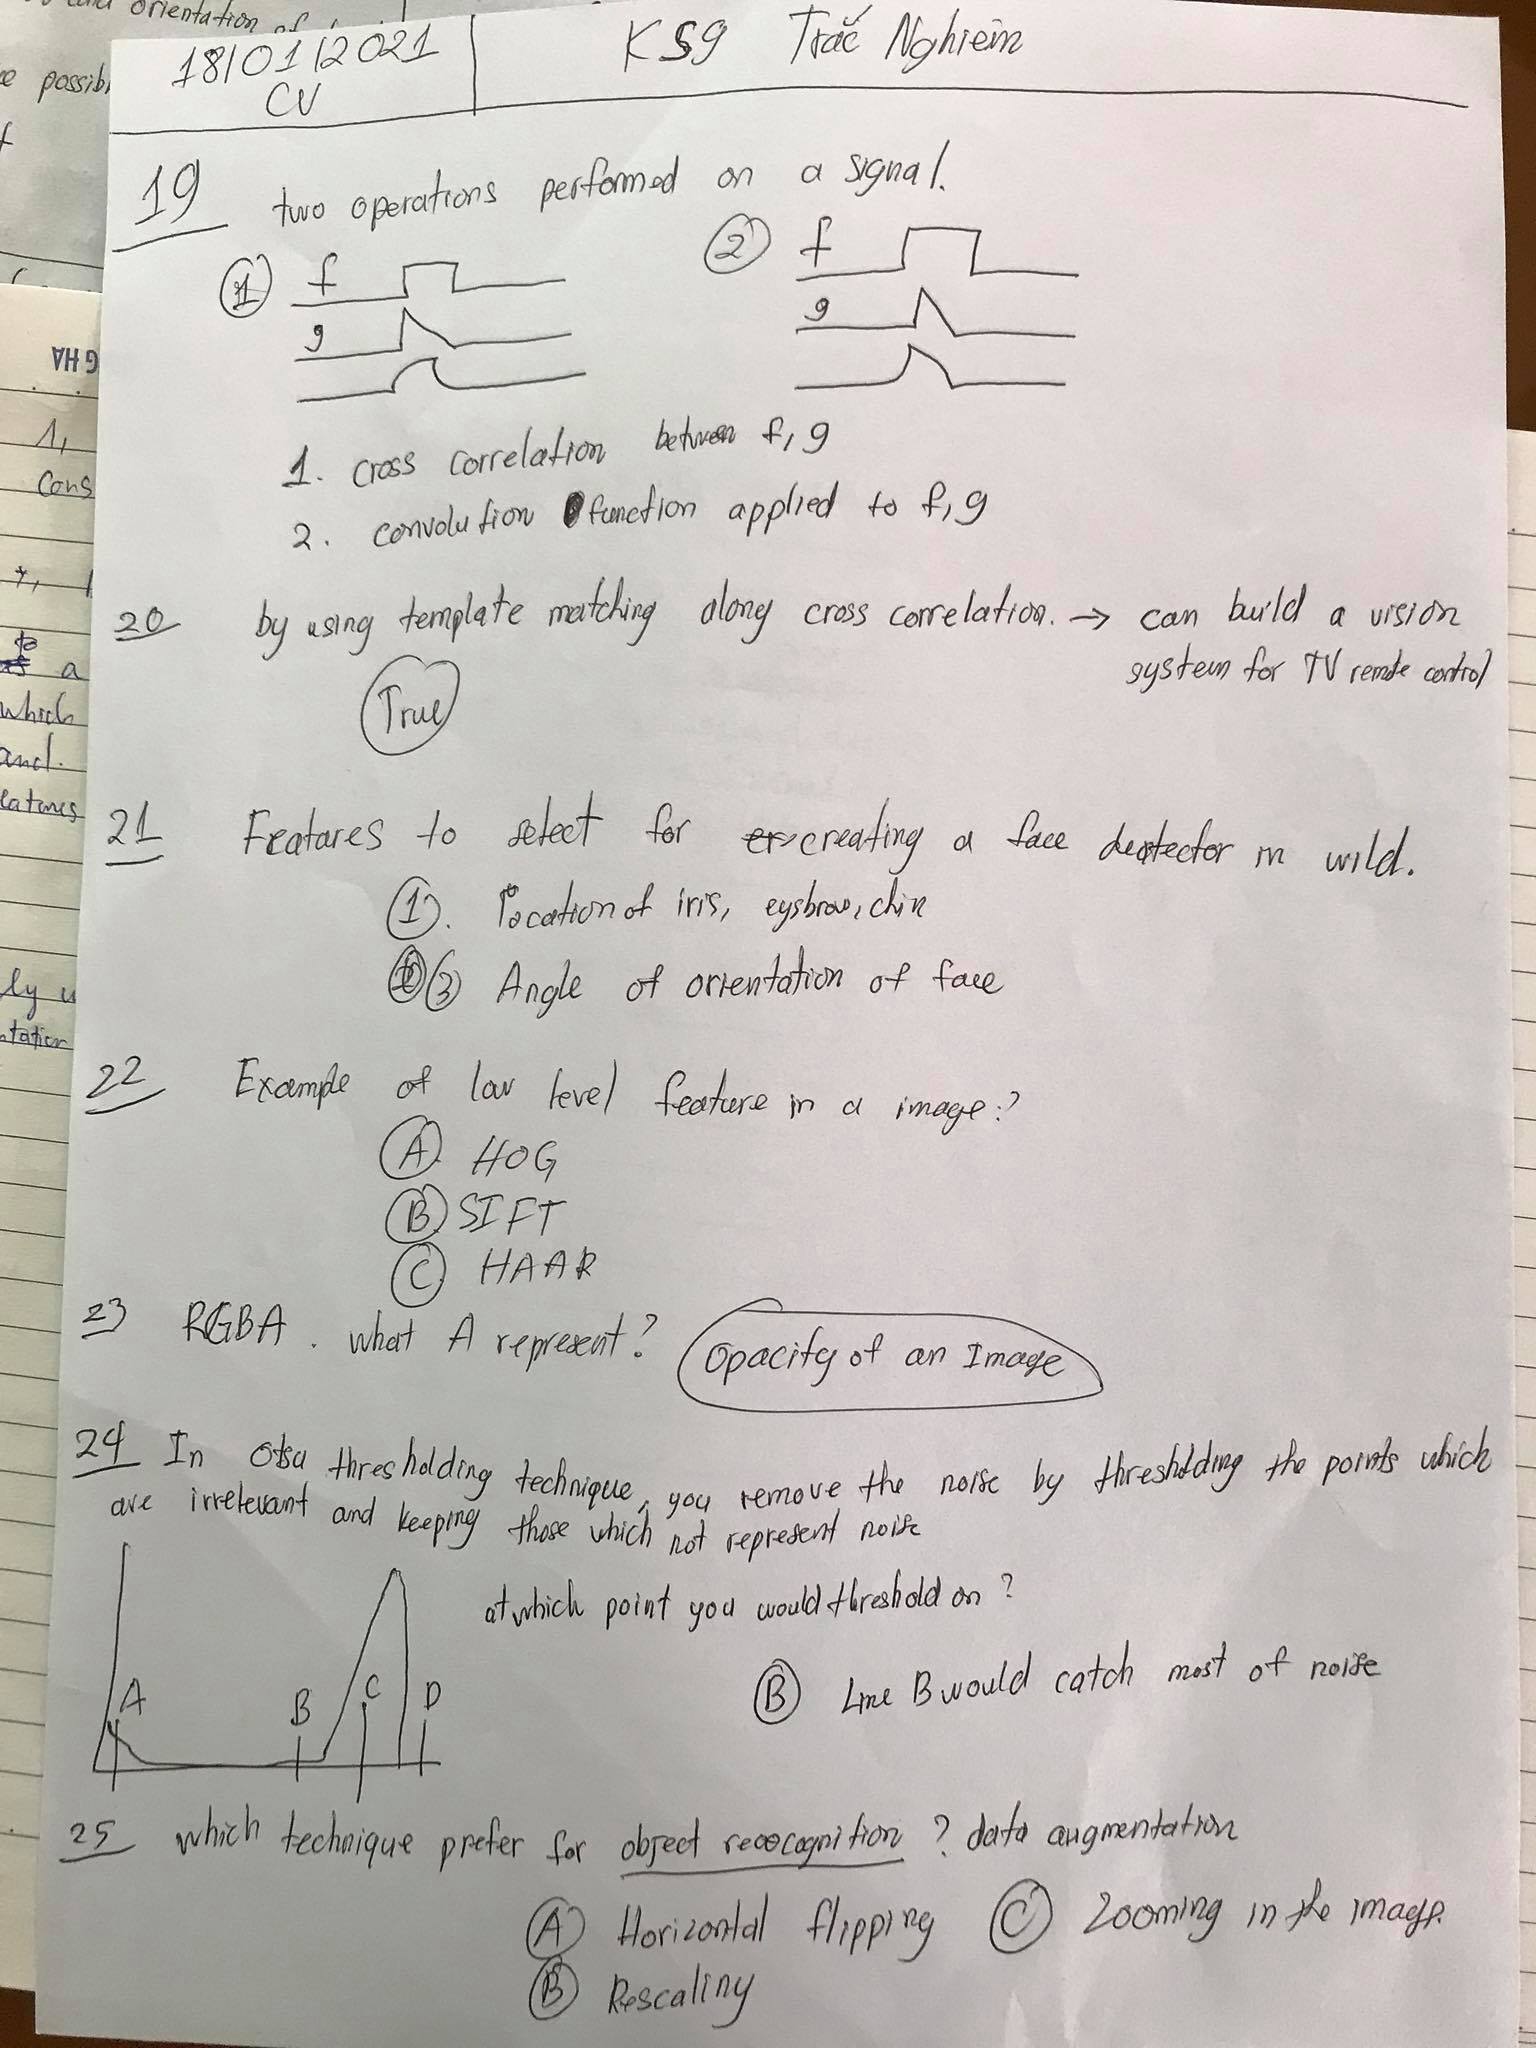 orientation of
possibl
18/01/2021
CV
KSg Trắc Nghiêm
19 two operations performed on a signal.
1 f
g
2 f
g
1. cross correlation between f, g
2. convolution function applied to f, g
20 by using template matching along cross correlation. → can build a vision
system for TV remote control
True
21 Features to select for creating a face detector in wild.
1. Location of iris, eysbrow, chin
3 Angle of orientation of face
22 Example of low level feature in a image?
A. HOG
B SIFT
C HAAR
23 RGBA. what A represent? Opacity of an Image
24 In Otsu thresholding technique, you remove the noise by thresholding the points which
are irrelevant and keeping those which not represent noise
at which point you would threshold on?
A B C D
B Line B would catch most of noise
25 which technique prefer for object recocognition? data augmentation
A Horizontal flipping C Zooming in the image.
B Rescaling
G HA
1,
Cons
to
a
which
and.
eatures
ly u
ntation